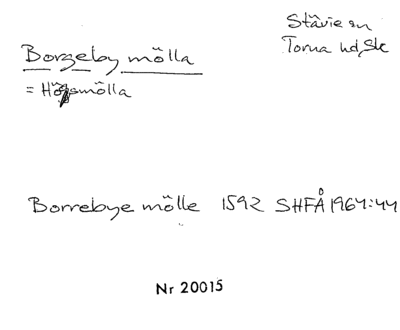 Stävie sn
Torna hd, Sk
Borgeby mölla
= Högsmölla
Borrebye mölle 1592 SHFÅ 1964:44
Nr 20015